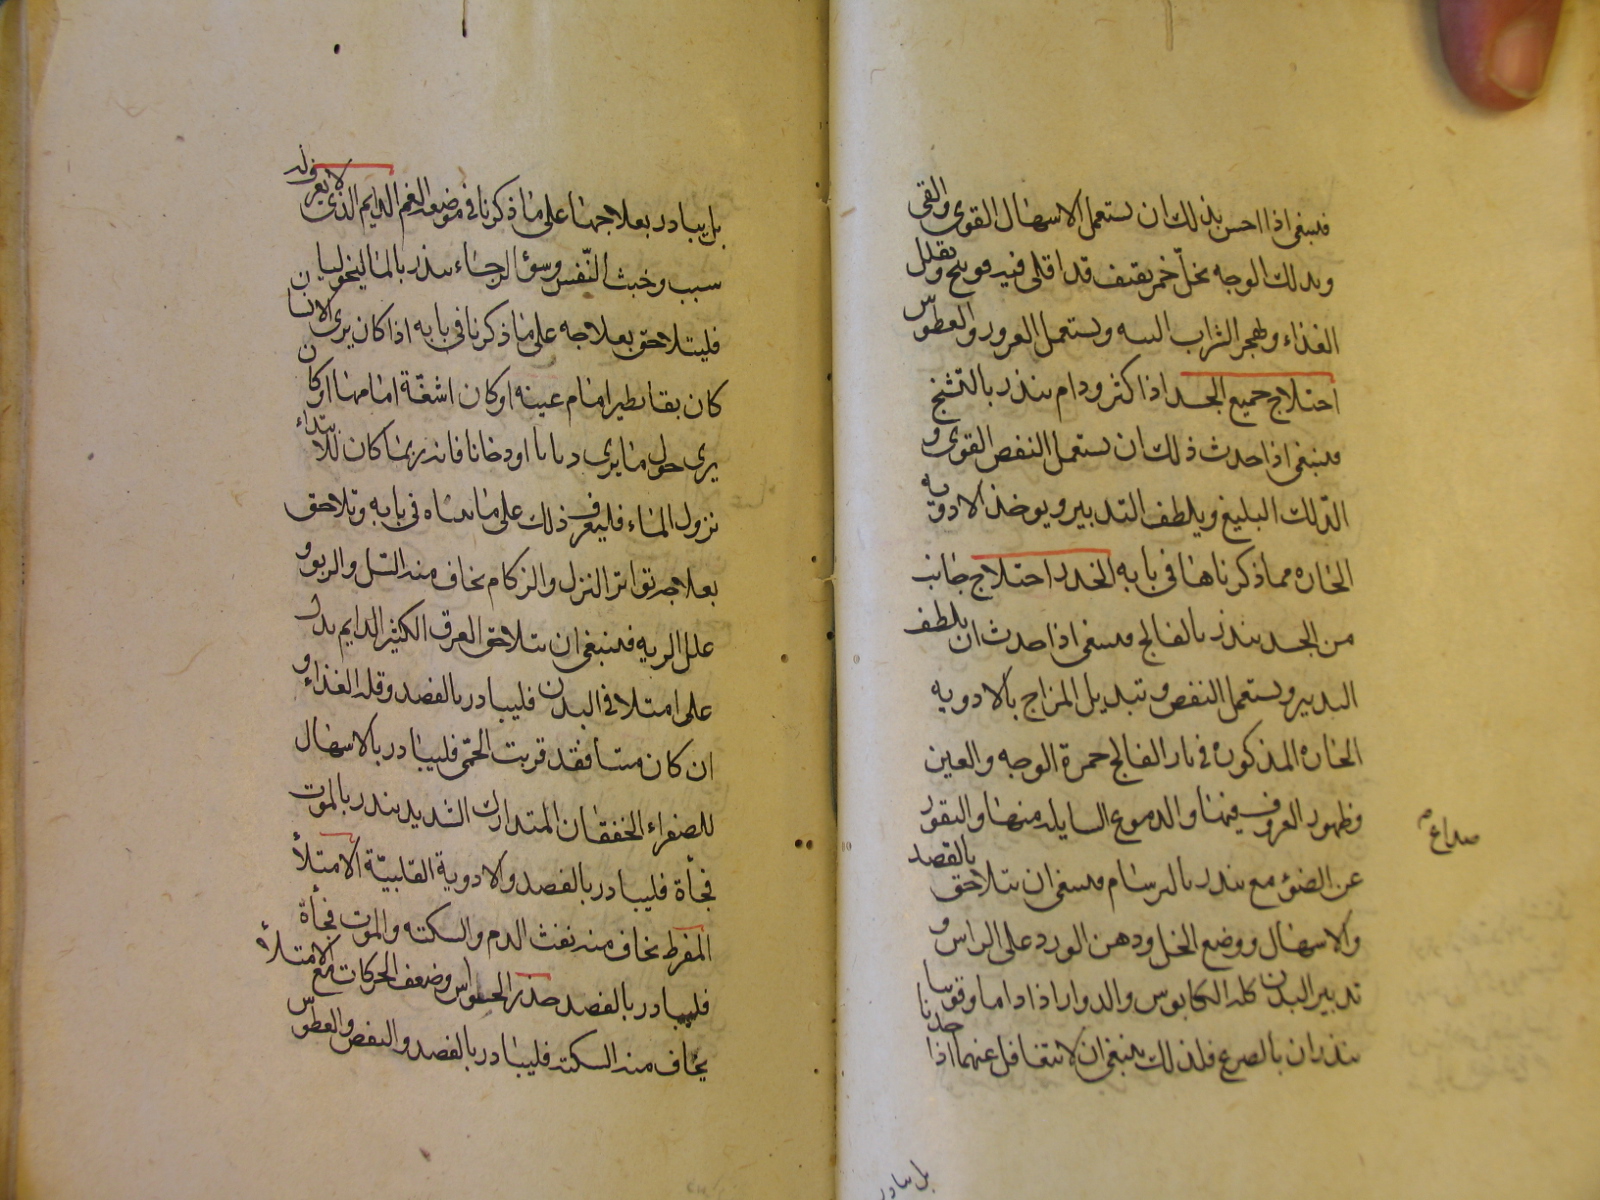 فينبغى اذا احس بذلك ان يستعمل الاسهال القوى والقى
وبدلك الوجه بخلّ خمر ثقيف قد اقلى فيه فوتنج ويقلل
الغذاء ويهجر الشراب البته ويستعمل الغرور والعطوس
اختلاج جميع الجسد اذا كثر ودام ينذر بالتشنج
فينبغى اذا حدث ذلك ان يستعمل النفض القوى و
الدّلك البليغ ويلطف التدبير ويوخذ الادويه
الحاره مما ذكرناها فى بابه الخدر اختلاج جانب
من الجسد ينذر بالفالج فينبغى اذا حدث ان يلطف
التدبير ويستعمل النفض وتبديل المزاج بالادويه
الحاره المذكوره فى باب الفالج حمرة الوجه والعين
وظهور العروق فيها والدموع السايله منها والنفور
عن الضوء مع ينذر بالبرسام فينبغى ان يتلاحق بالفصد
صداع
والاسهال ووضع الخل ودهن الورد على الراس و
تدبير البدن كله الكابوس والدوار اذا داما وقويا
ينذران بالصرع فلذلك ينبغى ان لا يتغافل عنهما اذا حدثا
بل يبادر
بل يبادر بعلاجها على ما ذكرنا فى موضعه الغم الدايم الذى لا يعرف له
سبب وخبث النّفس وسوء الرجاء ينذر بالماليخوليا
فليتلاحق بعلاجه على ما ذكرنا فى بابه اذا كان يرى الانسان
كان بقا يطير امام عينه او كان اشعّة امامها او كان
يرى حول ما يرى ضبابا او دخانا فانه ربما كان للابتداء
نزول الماء فليعرف ذلك على ما بيناه فى بابه وتلاحق
بعلاجه تواتر النزل والزكام يخاف منه السّل والربو و
علل الريه فينبغى ان يتلاحق العرق الكثير الدايم يدل
على امتلا فى البدن فليبادر بالفصد وقله الغذاء و
ان كان منتنا فقد قربت الحمّى فليبادر بالاسهال
للصفراء الخفقان المتدارك الشديد ينذر بالموت
فجأة فليبادر بالفصد والادوية القلبيّة الامتلأ
المفرط يخاف منه نفث الدم والسكته والموت فجأة
فليبادر بالفصد خدر الحواس وضعف الحركات مع الامتلأ
يخاف منه السكته فليبادر بالفصد والنفض والعطوس